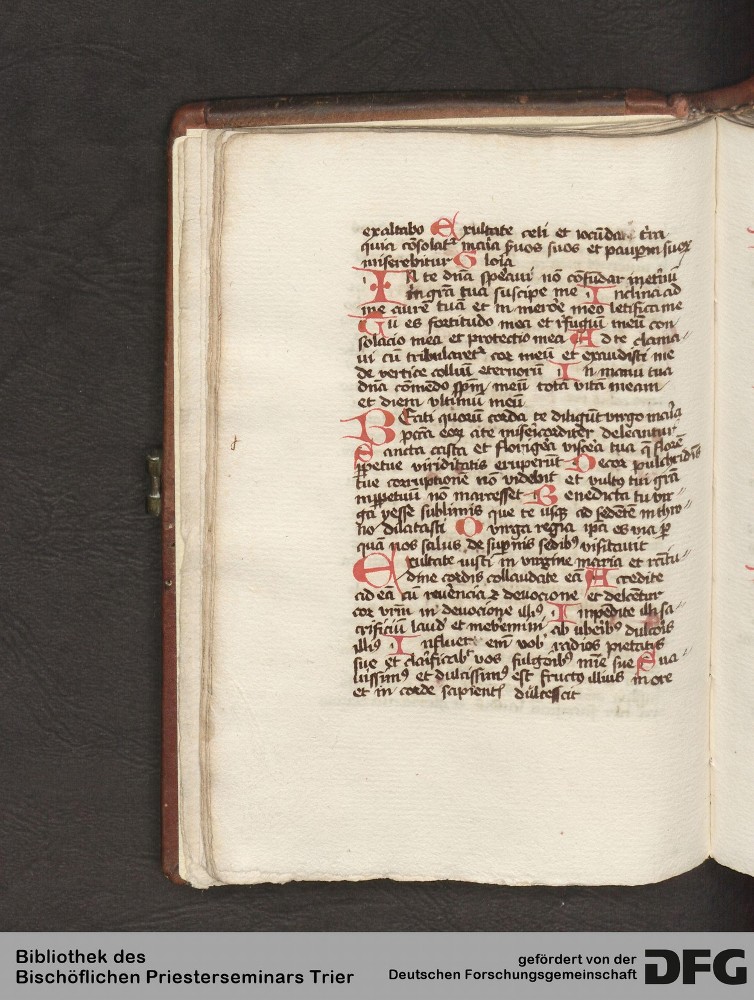 exaltabo Exultate celi et iocūdar t̄ra
quia cōsolatꝰ maria s̄uos suos et paupm suoꝝ
miserebitur Gloria
In te dn̄a speraui nō cōfūdar ineternū
in gr̄a tua suscipe me Inclina ad
me aurē tuā et in merore meo letifica me
Tu es fortitudo mea et refugiū meū con
solacio mea et protectio mea Ad te clama
ui cū tribularet cor meū et exaudisti me
de vertice colliū eternorū In manu tua
dn̄a cōmēdo spm̄ meū totā vitā meam
et diem vltimū meū
Beati quorum corda te diligūt virgo maria
pctā eoꝝ a te misericorditer deleantur
Sancta casta et florigera viscera tua q̄ florē
ꝑpetue viriditatis eruperūt Decor pulchritudinis
tue corruptionē nō videbit et vultꝰ tui gr̄a
inꝑpetuū nō marcesset Benedicta tu vir
ga yesse sublimis que te usqꝫ ad sedētē in thro
no dilatasti O virga regia ip̄a es via ꝑ
quā nos salus de supernis sedibꝰ visitauit
Exultate iusti in virgine maria et rectitu
dine cordis collaudate eā Accedite
ad eā cū reuerēcia et deuocione et delectetur
cor vr̄m in deuocione illiꝰ Impedite illi sa
crificiū laud et inebriemini ab uberibꝰ dulcoris
illiꝰ Influet em̄ vob radios pietatis
sue et clarificabit vos fulgoribꝰ mie sue Sua
uissimꝰ et dulcissimꝰ est fructꝰ illius in ore
et in corde sapientis dulcescit
Bibliothek des
Bischöflichen Priesterseminars Trier
gefördert von der
Deutschen Forschungsgemeinschaft
DFG